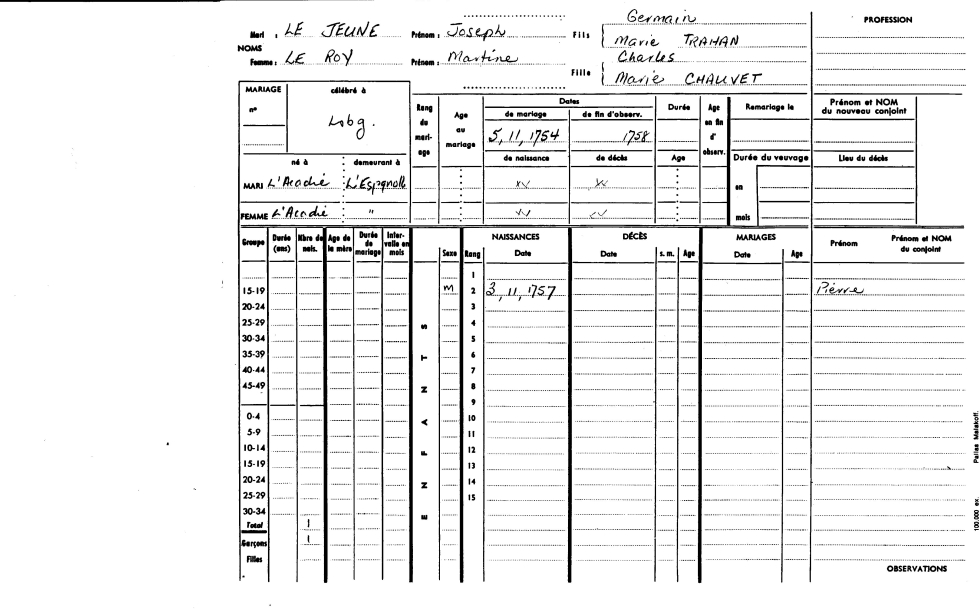 Germain
PROFESSION
Mari : LE JEUNE Prénom : Joseph Fils Marie TRAHAN
NOMS
Charles
Femme : LE ROY Prénom : Martine
Fille Marie CHAUVET
MARIAGE célébré à
n° Lobg.
Rang du mari- age
Age au mariage
Dates
de mariage de fin d'observ.
5, 11, 1754 1758
de naissance de décès
Durée
Age
Age en fin d' observ.
Remariage le
Prénom et NOM du nouveau conjoint
Durée du veuvage Lieu du décès
né à demeurant à
MARI L'Acadie L'Espgnolle
en
FEMME L'Acadie "
mois
Groupe Durée (ans) Nbre de nais. Age de la mère Durée de mariage Inter- valle en mois Sexe Rang
NAISSANCES DÉCÈS MARIAGES
Date Date s. m. Age Date Age Prénom Prénom et NOM du conjoint
ENFANTS
1
15-19 M 2 3, 11, 1757 Pierre
20-24 3
25-29 4
30-34 5
35-39 6
40-44 7
45-49 8
9
0-4 10
5-9 11
10-14 12
15-19 13
20-24 14
25-29 15
30-34
Total 1
Garçons 1
Filles
OBSERVATIONS
100.000 ex. Pallas Malakoff.